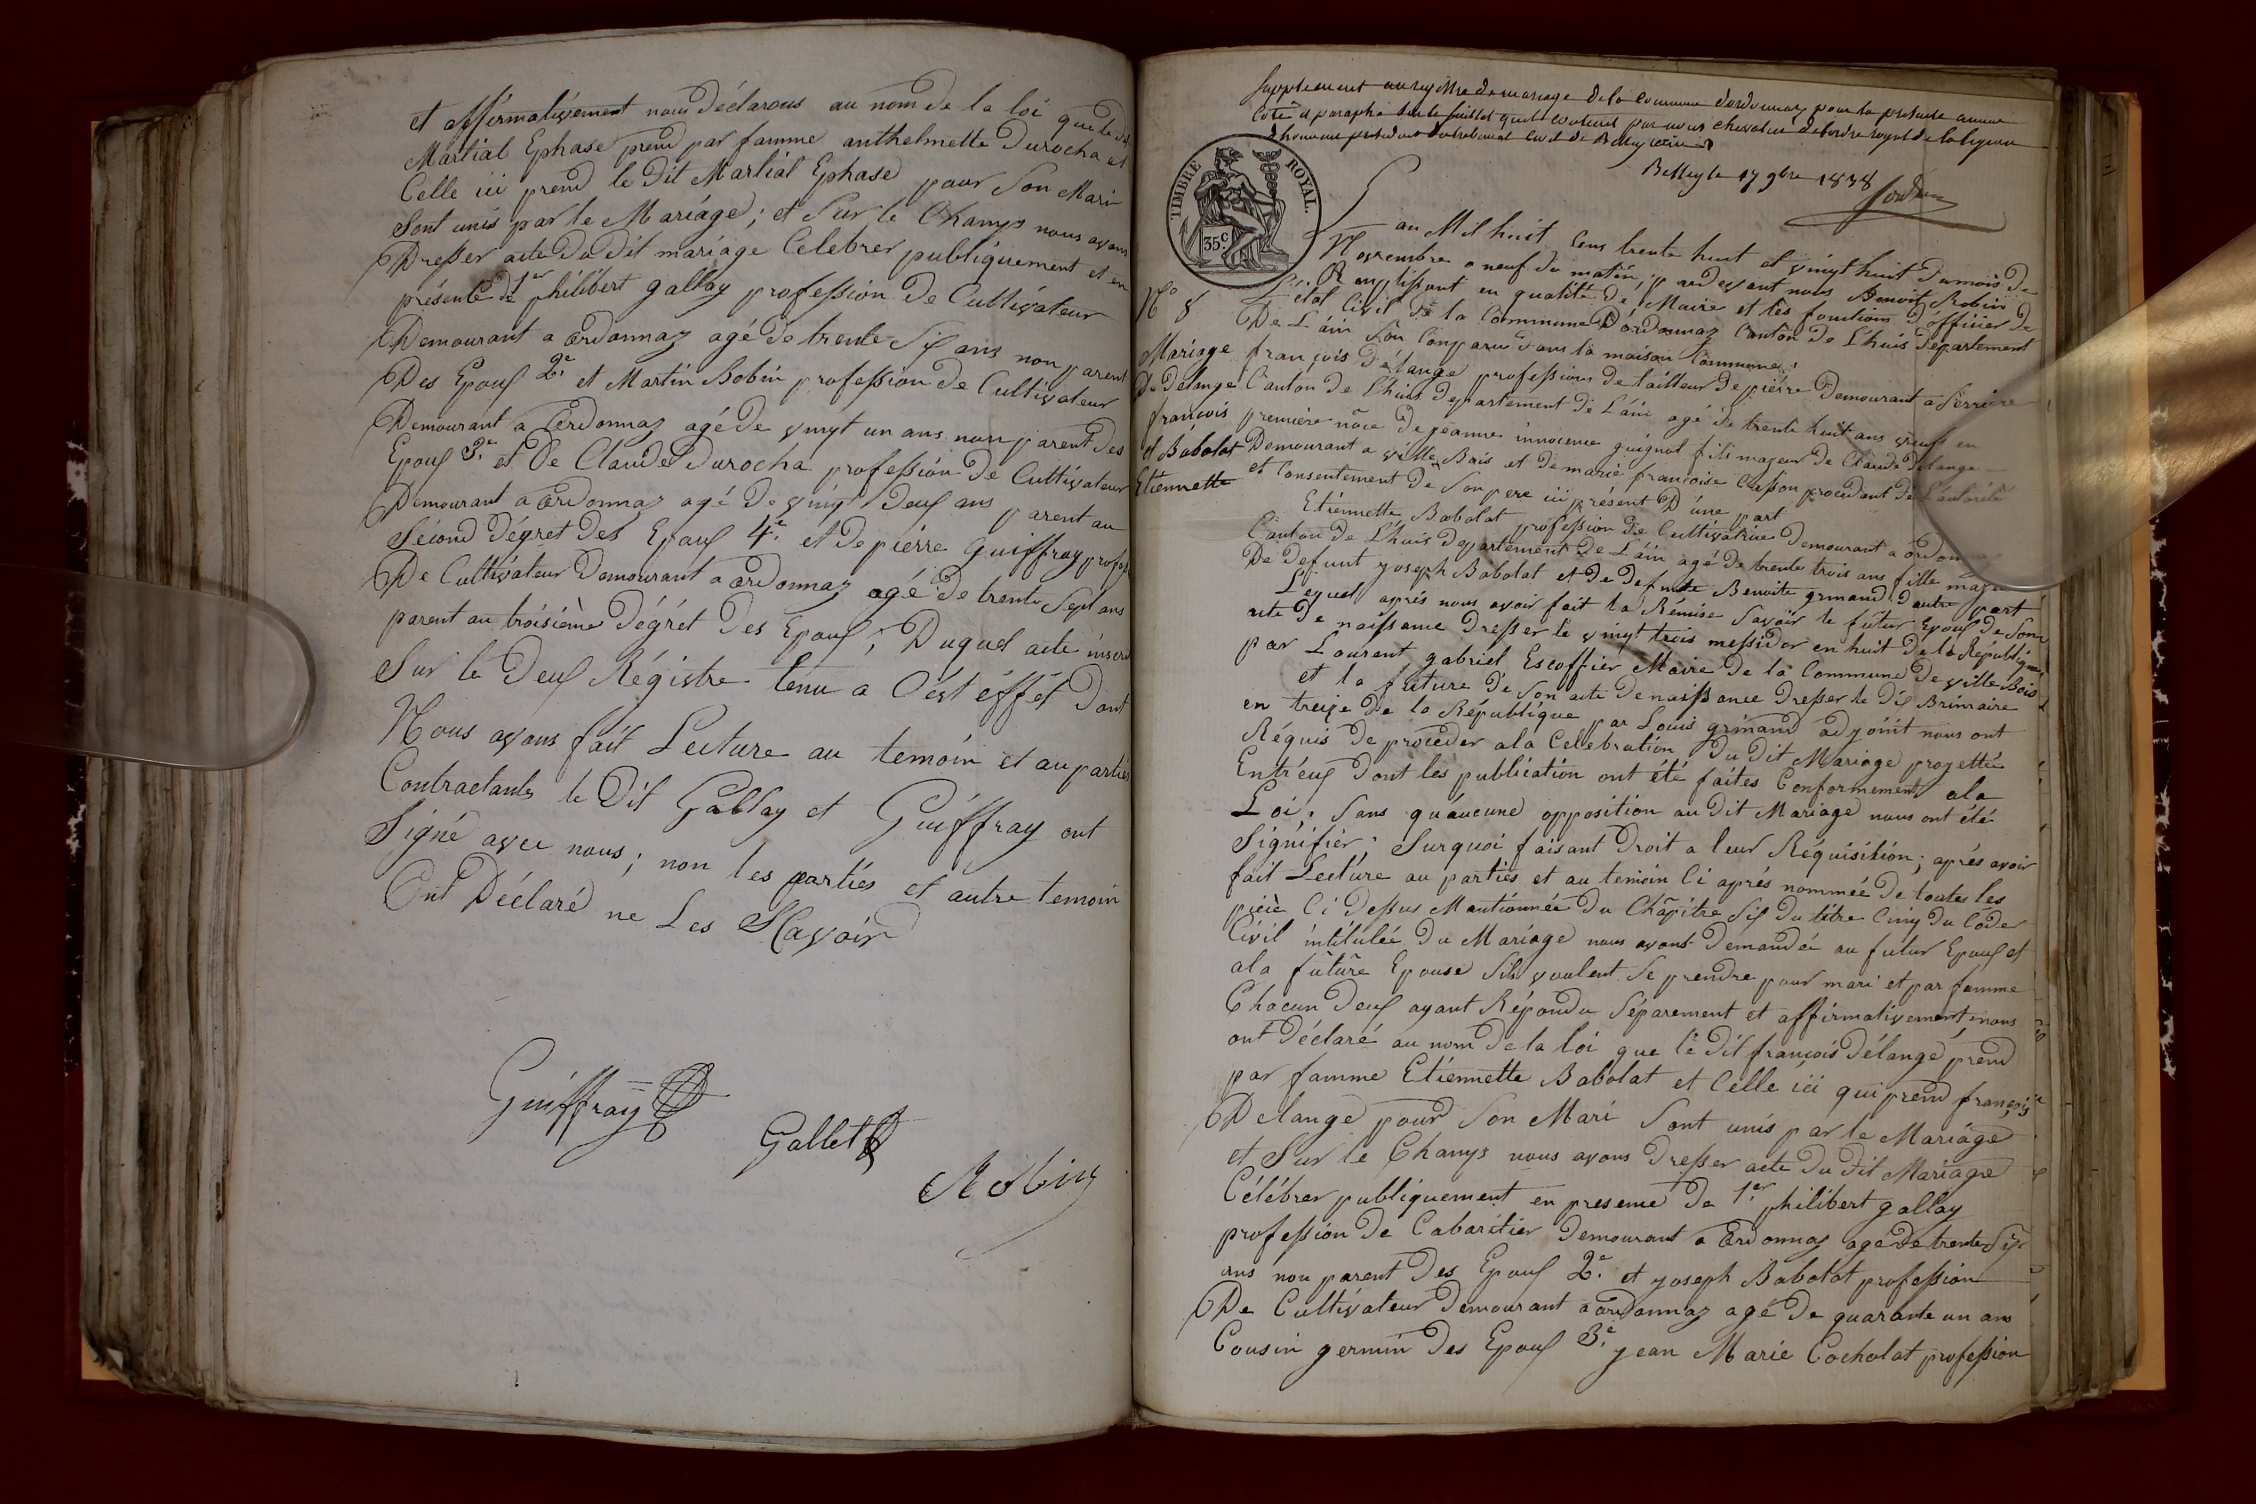 et affirmativement nous déclarons au nom de la loi que le dit
Martial Ephase prend par famme anthelmette Durochat et
Celle ici prend le dit Martial Ephase pour Son Mari
Sont unis par le Mariage; et Sur le Champs nous avons
Dresser acte du dit mariage Celebrer publiquement et en
présence de 1er philibert gallay profession de Cultivateur
Demourant a ordonnaz agé de trente Six ans non parent
Des Epoux 2e. et Martin Bobin profession de Cultivateur
Demourant a ordonnaz agé de vingt un ans non parent des
Epoux 3e. et De Claude Durocha profession de Cultivateur
Demourant a ordonnaz agé de vingt deux ans parent au
Sécond dégret des Epoux 4e. et de piérre Guiffray profess
De Cultivateur Demourant a ordonnaz agé de trente Sept ans
parent au troisième dégrét des Epoux; Duquel acte inscrit
Sur le Deux Régistre tenu a C'ést éffét Dont
Nous avons fait Lecture au temoin et au parties
Contractants le Dit Gallay et Guiffray ont
Signé avec nous; non les parties et autre temoin
Ont Déclaré ne Les SCavoir
Guiffray
Gallet
Robin
Supplement au registre de mariage de la Commune d'ordonnaz pour la présente année
Coté et paraphé Seul feuillet par nous chevalier de l'ordre royal de la légion
d'honneur président du tribunal Civil de Belley
Belley le 17 9bre 1838
TIMBRE ROYAL.
35c
L'an Mil huit Cens trente huit et vingt huit du mois de
Novembre a neuf du matin; par devant nous Benoit Robin
Remplissant en qualité de Maire et les fonctions d'officier de
état Civil de la Commune D'ordonnaz Canton de L'huis département
De L'áin Son Comparu dans la maison Commune;
No 8
Mariage
De Delange
françois
et Babolat
Etiennette
françois Délange profession de tailleur de piérre Demourant a Serriere
Canton de L'huis département de L'áin agé de trente huit ans veuf en
premiere nôce de jéanne innocence guignot fils majeur de Claude Délange
Demourant a ville Bois et de marie françoise Cusson procédant de L'autorité
et Consentement de Son pere ici présent D'une part
Etiennette Babolat profession de Cultivatrice Demourant a ordon
Canton de L'huis département de L'áin agé de trente trois ans fille maj
De defunt yoseph Babolat et de defunte Benoite grinand d'autre part
Léquel aprés nous avoir fait la Rémise Savoir le futur Epoux de Son
acte de naissance Dresser le vingt trois messidor en huit de la République
par Laurent gabriel Escoffier Maire de la Commune de ville Bois
et la future de Son acte de naissance Dresser le dix Brimaire
en treize de la République par Louis grinand adjoint nous ont
Réquis de procéder a la Celebration du dit Mariage projetté
Entr'eux dont les publication ont été faites Conformement a la
Loi; Sans qu'aucune opposition au dit Mariage nous ont été
Signifiér. Surquoi faisant Droit a leur Réquisition; aprés avoir
fait Lecture au parties et au temoin Ci aprés nommée de toutes les
pièce Ci dessus Mantionnée du Châpitre Six du titre Cinq du Code
Civil intitulée du Mariage nous avont demandée au futur Epoux et
a la future Epouse Sils voulent Se prendre pour mari et par famme
Chacun deux ayant Répondu Séparement et affirmativement nous
ont déclaré au nom de la loi que le dit françois Délange prend
par famme Etiennette Babolat et Celle ici qui prend françois
Delange pour Son Mari Sont unis par le Mariage
et Sur le Champs nous avons dresser acte du dit Mariage
Célébrer publiquement en presence de 1er. philibert gallay
profession de Cabaritier demourant a ordonnaz agé de trente Six
ans non parent des Epoux 2e. et yoseph Babolat profession
De Cultivateur demourant a ordonnaz agé de quarante un ans
Cousin germin des Epoux 3e. yean Marie Cocholat profession